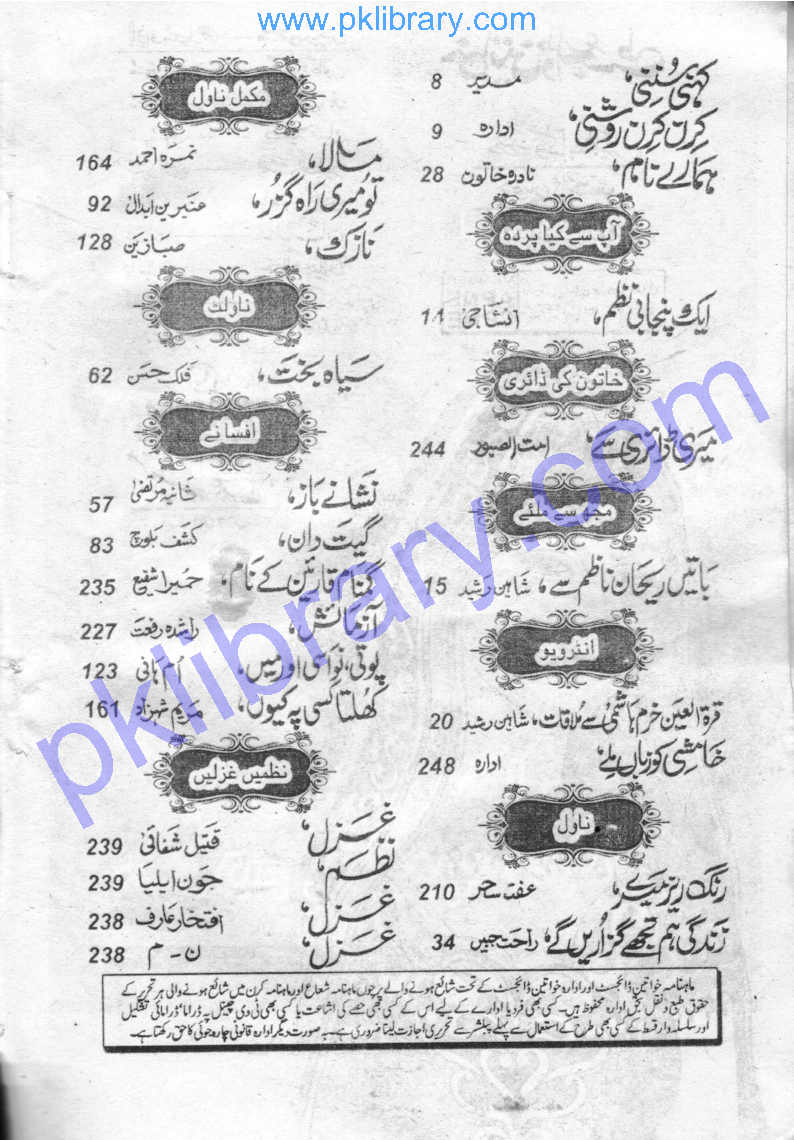 www.pklibrary.com
کہنی سُننی، مدیر 8
کِرن کِرن روشنی، ادارہ 9
ہمارے نام، نادرہ خاتون 28
آپ سے کیا پردہ
ایک پنجابی نظم، انشا جی 14
خاتون کی ڈائری
میری ڈائری سے، امت الصبور 244
مجھ سے ملئے
باتیں ریحان ناظم سے، شاہین رشید 15
انٹرویو
قرۃ العین خرم ہاشمی سے ملاقات، شاہین رشید 20
خامشی کو زباں ملے، ادارہ 248
ناول
رنگ ریز میرے، عفت سحر 210
زندگی ہم تجھے گزاریں گے، راحت جبیں 34
مکمل ناول
مالا، نمرہ احمد 164
تو میری راہ گزر، عنیزہ بن ابدال 92
نازک، صبا زین 128
ناولٹ
سیاہ بخت، فلک حسن 62
افسانے
نشانے باز، شانیہ مرتضیٰ 57
گیت دان، کشف بلوچ 83
گمنام قارئین کے نام، حمیرا شفیع 235
آزمائش، راشدہ رفعت 227
پوتی، نواسی اور میں، اُم ہانی 123
کھلتا کسی پہ کیوں، مریم شہزاد 161
نظمیں غزلیں
غزل، قتیل شفائی 239
نظم، جون ایلیا 239
غزل، افتخار عارف 238
غزل، ن ۔ م 238
ماہنامہ خواتین ڈائجسٹ اور ادارہ خواتین ڈائجسٹ کے تحت شائع ہونے والے پرچوں ماہنامہ شعاع اور ماہنامہ کرن میں شائع ہونے والی ہر تحریر کے
حقوق طبع و نقل بحق ادارہ محفوظ ہیں۔ کسی بھی فرد یا ادارے کے لیے اس کے کسی بھی حصے کی اشاعت یا کسی بھی ٹی وی چینل پہ ڈراما، ڈرامائی تشکیل
اور سلسلہ وار قسط کے کسی بھی طرح کے استعمال سے پہلے پبلشر سے تحریری اجازت لینا ضروری ہے۔ بہ صورت دیگر ادارہ قانونی چارہ جوئی کا حق رکھتا ہے۔
pklibrary.com